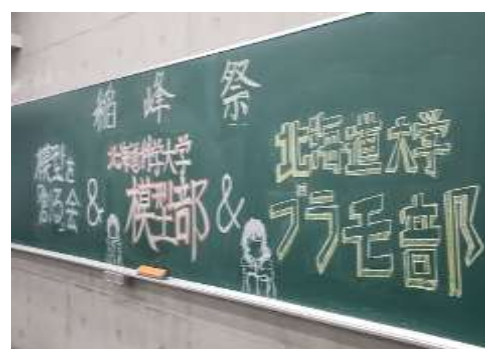 稲峰祭
模型を
創る会
&
北海道科学大学
模型部
&
北海道大学
プラモ部